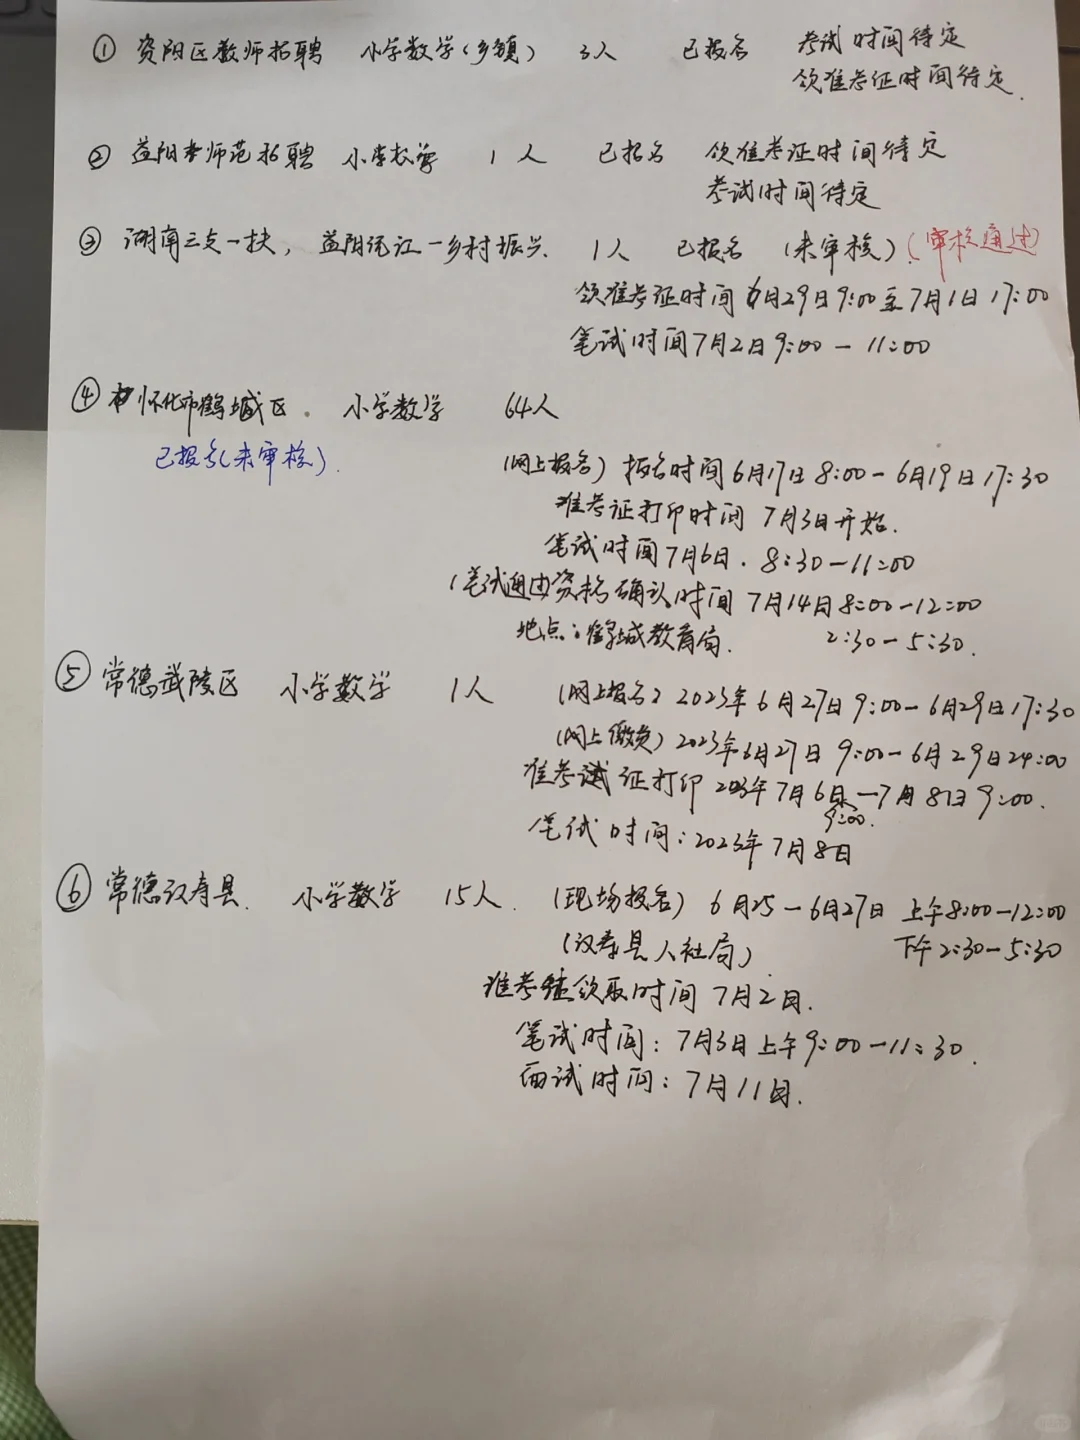 ① 资阳区教师招聘 小学数学(乡镇) 3人 已报名 考试时间待定
领准考证时间待定.
② 益阳师范招聘 小学数学 1人 已报名 领准考证时间待定
考试时间待定
③ 湖南三支一扶, 益阳沅江-乡村振兴. 1人 已报名 (未审核).(审核通过)
领准考证时间6月29日9:00至7月1日17:00
笔试时间7月2日9:00-11:00
④ 怀化市鹤城区. 小学数学 64人
已报名(未审核).
(网上报名) 报名时间6月17日8:00-6月19日17:30
准考证打印时间 7月3日开始.
笔试时间7月6日. 8:30-11:00
(笔试通过)资格确认时间 7月14日8:00-12:00
地点:鹤城教育局. 2:30-5:30.
⑤ 常德武陵区 小学数学 1人 (网上报名) 2023年6月27日9:00-6月29日17:30
(网上缴费) 2023年6月27日 9:00-6月29日24:00
准考证打印 2023年7月6日-7月8日9:00.
9:00.
笔试时间:2023年7月8日
⑥ 常德汉寿县. 小学数学 15人. (现场报名) 6月25-6月27日 上午8:00-12:00
(汉寿县人社局) 下午2:30-5:30
准考证领取时间 7月2日.
笔试时间: 7月3日上午9:00-11:30.
面试时间: 7月11日.